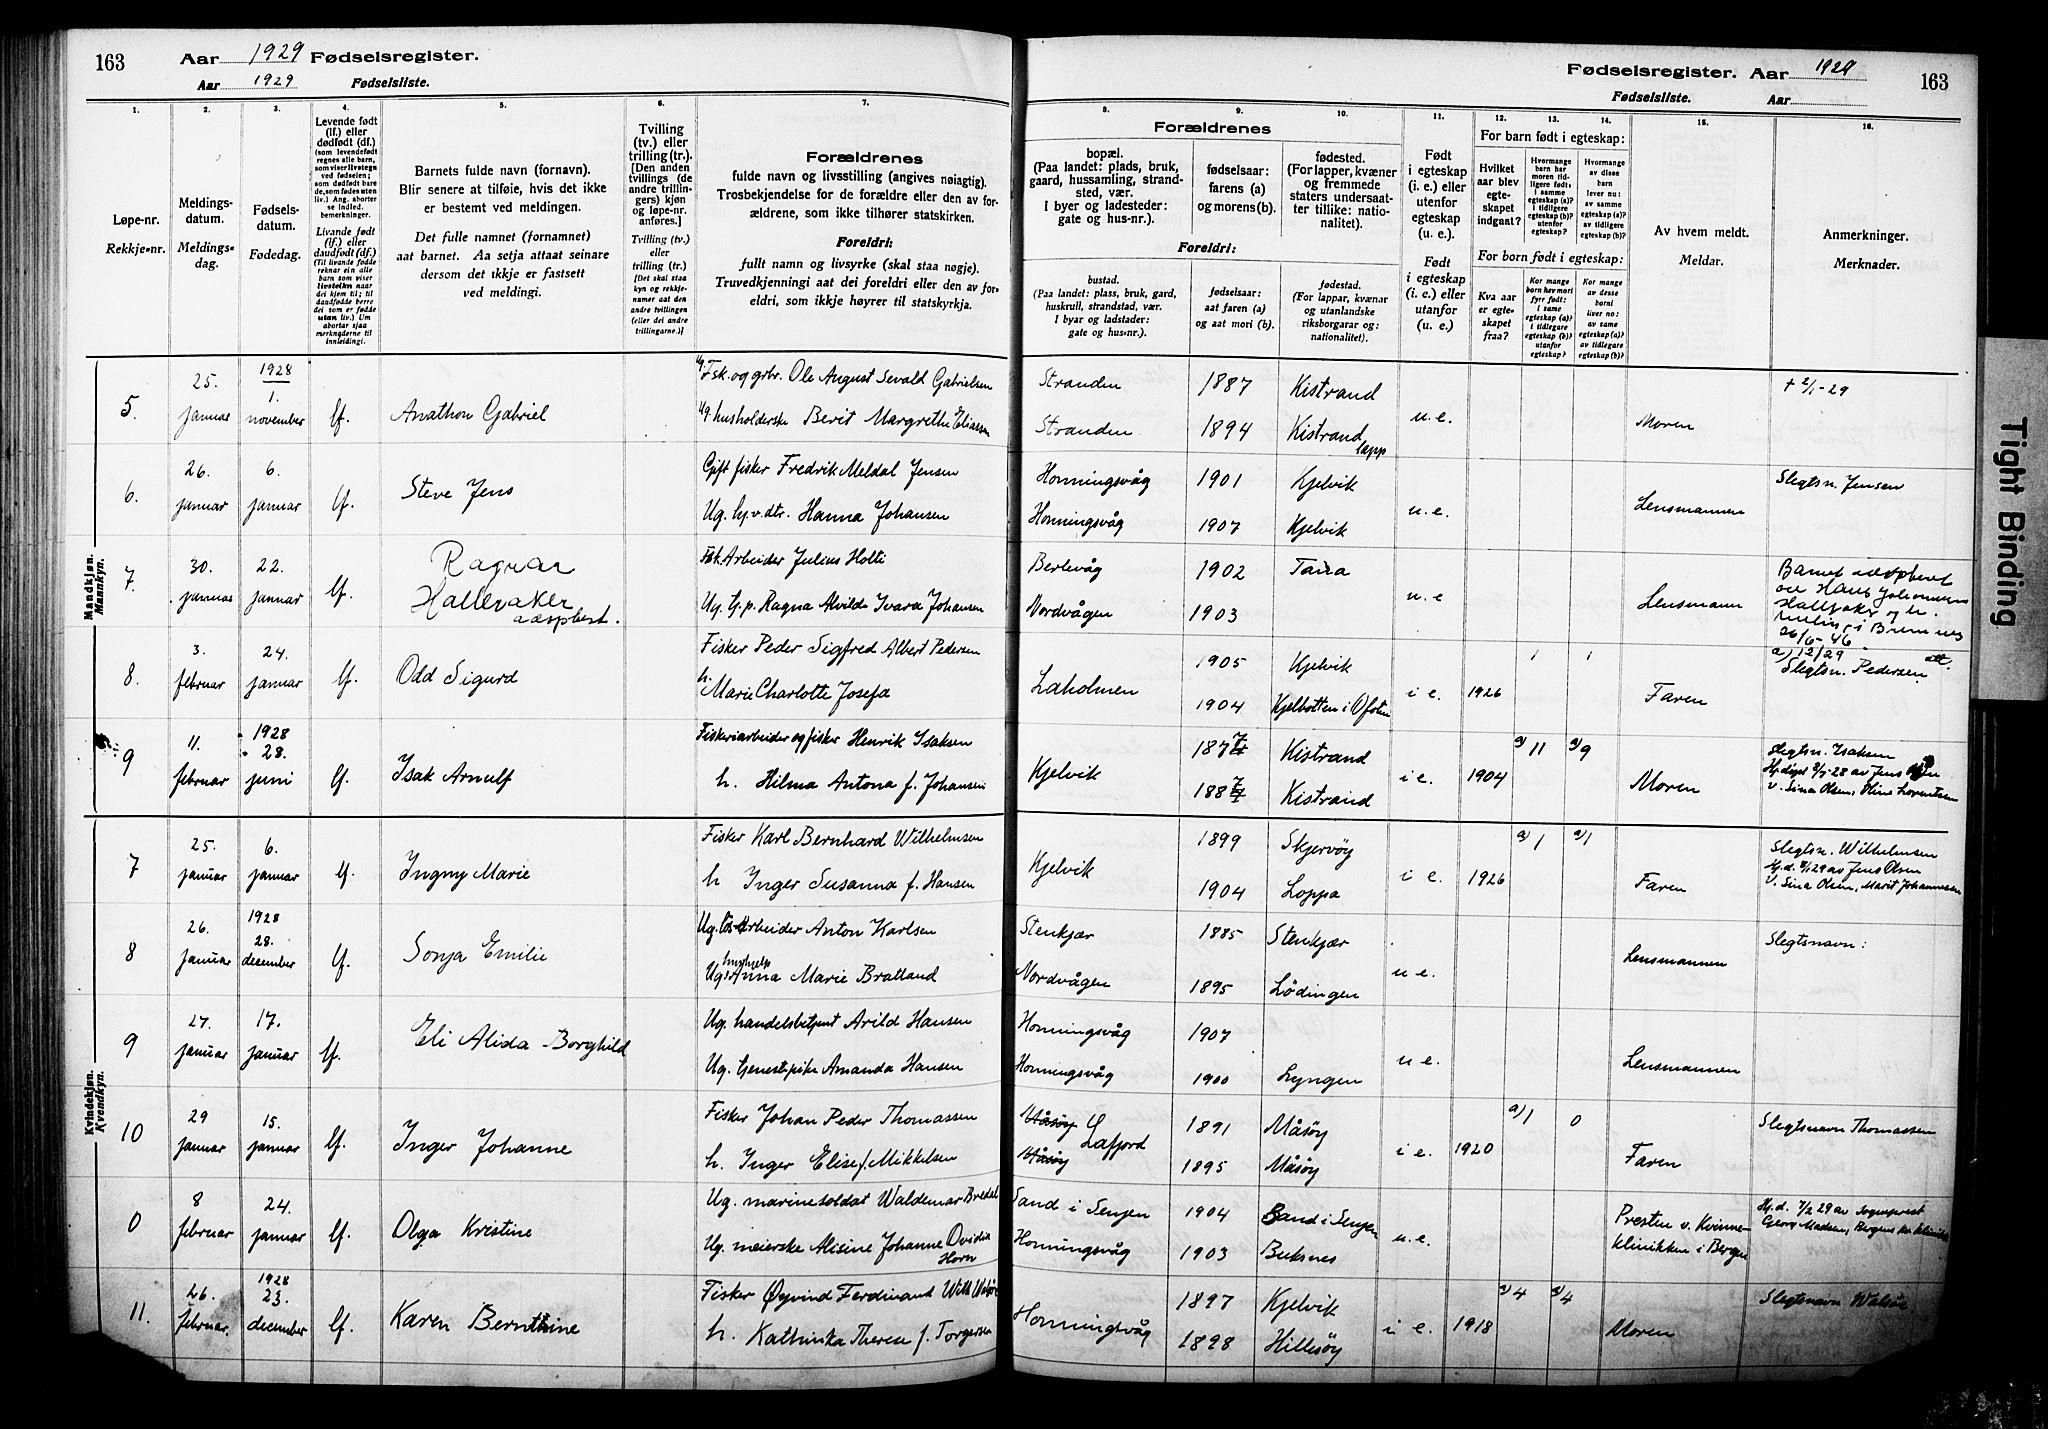 163 Aar 1929 Fødselsregister.
Aar 1929 Fødselsliste.
Fødselsregister. Aar 1929 163
Fødselsliste. Aar
1. 2. 3. 4. 5. 6. 7. 8. 9. 10. 11. 12. 13. 14. 15. 16.
Løpe-nr.
Rekkje-nr.
Meldings-
datum.
Meldings-
dag.
Fødsels-
datum.
Fødedag.
Levende født
(lf.) eller
dødfødt (df.)
(som levendefødt
regnes alle barn,
som viser livstegn
ved fødselen;
som dødfødt bare
de, som fødes uten
liv.) Ang. aborter
se indled.
bemerkninger.
Livande født
(lf.) eller
daudfødt (df.)
(Til livande fødde
reknar ein alle
barn som viser
livsteikn naar
dei kjem til; til
daudfødde berre
dei som er fødde
utan liv.) Um
abortar sjaa
merknaderne til
innleidingi.
Barnets fulde navn (fornavn).
Blir senere at tilføie, hvis det ikke
er bestemt ved meldingen.
Det fulle namnet (fornamnet)
aat barnet. Aa setja attaat seinare
dersom det ikkje er fastsett
ved meldingi.
Tvilling
(tv.) eller
trilling (tr.)
[Den anden
tvillings (de
andre trillin-
gers) kjøn
og løpe-nr.
anføres.]
Tvilling (tv.)
eller
trilling (tr.)
[Det skal staa
kyn og rekkje-
numer aat den
andre tvillingen
(eller dei andre
trillingarne.)]
Forældrenes
fulde navn og livsstilling (angives nøiagtig).
Trosbekjendelse for de forældre eller den av for-
ældrene, som ikke tilhører statskirken.
Foreldri:
fullt namn og livsyrke (skal staa nøgje).
Truvedkjenningi aat dei foreldri eller den av for-
eldri, som ikkje høyrer til statskyrkja.
Forældrenes
bopæl.
(Paa landet: plads, bruk,
gaard, hussamling, strand-
sted, vær.
I byer og ladesteder:
gate og hus-nr.).
Foreldri:
bustad.
(Paa landet: plass, bruk, gard,
huskrull, strandstad, vær.
I byar og ladstader:
gate og hus-nr.).
fødselsaar:
farens (a)
og morens (b).
fødselsaar:
aat faren (a)
og aat mori (b).
fødested.
(For lapper, kvæner
og fremmede
staters undersaat-
ter tillike: natio-
nalitet).
fødestad.
(For lappar, kvænar
og utanlandske
riksborgarar og:
nationalitet).
Født
i egteskap
(i. e.) eller
utenfor
egteskap
(u. e.).
Født
i egteskap
(i. e.) eller
utanfor
(u. e.).
For barn født i egteskap:
Hvilket
aar blev
egte-
skapet
indgaat?
Hvormange
barn har
moren tid-
ligere født:
i samme
egteskap (a)?
i tidligere
egteskap (b)?
utenfor
egteskap?
Hvormange
av disse
barn
lever nu:
av samme
egteskap (a)?
av tidligere
egteskap (b)?
For born født i egteskap:
Kva aar
er egte-
skapet
fraa?
Kor mange
born hev mori
fyrr født:
i same
egteskap (a)?
i tidlegare
egteskap (b)?
utanfor
egteskap?
Kor mange
av desse
borni
liver no:
av same
egteskap (a)?
av tidlegare
egteskap (b)?
Av hvem meldt.
Meldar.
Anmerkninger.
Merknader.
Mandkjøn.
Mannkyn.
5. 25. januar 1928 1. november lf. Anathon Gabriel
Fsk. og grbr. Ole August Sevald Gabrielsen Stranden 1887 Kistrand † 2/1-29
ug. husholderske Berit Margrethe Eliassen Stranden 1894 Kistrand lapp u.e. Moren
6. 26. januar 6. januar lf. Steve Jens
Gift fisker Fredrik Meldal Jensen Honningsvåg 1901 Kjelvik Slegtsn. Jensen
Ug. hj.v.dtr. Hanna Johansen Honningsvåg 1907 Kjelvik u.e. Lensmannen
7. 30. januar 22. januar lf. Ragnar Hallevaker adoptert.
Fsk. Arbeider Julius Holti Berlevåg 1902 Tana
Ug. tj.p. Ragna Alvilde Ivara Johansen Nordvågen 1903 u.e Lensmann
Barnet adoptert
av Hans
og
i Bremnes
26/6-46
8. 3. februar 24. januar lf. Odd Sigurd
Fisker Peder Sigfred Albert Pedersen 1905 Kjelvik 1 1 a) 12/29 att.
Slegtsn. Pedersen
h. Marie Charlotte Josefa Laholmen 1904 Kjelbotten i Ofoten i e. 1926 Faren
9 11. februar 1928 28. juni lf. Isak Arnulf
Fiskeriarbeider og fisker Henrik Isaksen Kjelvik 1877 Kistrand a/11 a/9 Slegtsn. Isaksen
h. Hilma Antona f. Johansen 1887 Kistrand i e. 1904 Moren
Hj.døpt 2/7-28 av Jens Olsen
v. Sina Olsen, Oline Lorentsen
Kvindekjøn.
Kvendkyn.
7 25. januar 6. januar lf. Ingny Marie
Fisker Karl Bernhard Wilhelmsen Kjelvik 1899 Skjervøy a/1 a/1 Slegtsn. Wilhelmsen
h Inger Susanna f. Hansen 1904 Loppa i e. 1926 Faren
Hj.d. 8/1 29 av Jens Olsen
v. Sina Olsen, Marit Johannessen
8 26. januar 1928 28. december lf. Sonja Emilie
Ug. løsarbeider Anton Karlsen Stenkjær 1885 Stenkjær Slegtsnavn:
Ug. hushjelp Anna Marie Bratland Nordvågen 1895 Lødingen u e. Lensmannen
9 27. januar 17. januar lf. Eli Alida Borghild
Ug. handelsbetjent Arild Hansen Honningsvåg 1907
Ug. tjenestpike Amanda Hansen Honningsvåg 1900 Lyngen u e. Lensmannen
10 29 januar 15. januar lf. Inger Johanne
Fisker Johan Peder Thomassen Måsøy Lafjord 1891 Måsøy a/1 0 Slegtsnavn Thomassen
h. Inger Elise f. Mikkelsen Måsøy 1895 Måsøy i e. 1920 Faren
0 8 februar 24. januar lf. Olga Kristine
Ug. marinesoldat Waldemar Bredal Sand i Senjen 1904 Sand i Senjen
Ug. meierske Alisine Johanne Ovidia Horn Honningsvåg 1903 Buksnes u.e.
Presten v. Kvinne-
klinikken i Bergen
Hj.d. 7/2 29 av sogneprest
Georg Madsen, Bergens kv.klinikk
11. 26. februar. 1928 23. december lf. Karen Bernthine
Fisker Øyvind Ferdinand Wilh Walsøe Honningsvåg 1897 Kjelvik a/4 a/4 Slegtsnavn Walsøe
h. Kathinka Therese f. Torgersen 1898 Hillesøy i e. 1918 Moren
Tight Binding